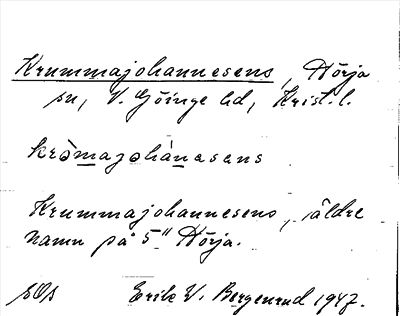 Krummajohannesens, Hörja
sn, V. Göinge hd, Krist. l.
kròmajohánasens
Krummajohannesens, äldre
namn på 5" Hörja.
sOs Erik W. Bergenrud 1947.